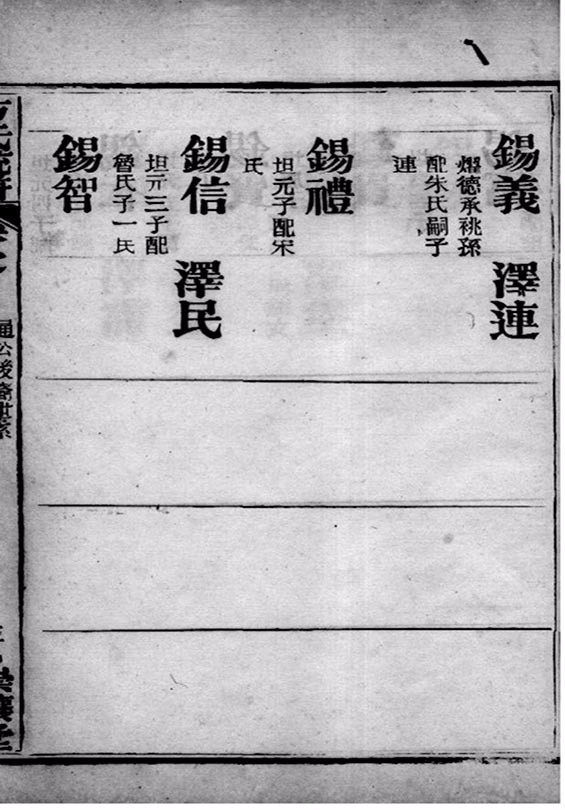 錫義
熠德承祧孫
配朱氏嗣子
連
澤連
錫禮
坦元子配宋
氏
錫信
坦元三子配
魯氏子一民
澤民
錫智
通公後裔世系